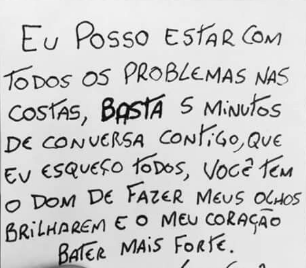 EU POSSO ESTAR COM
TODOS OS PROBLEMAS NAS
COSTAS, BASTA 5 MINUTOS
DE CONVERSA CONTIGO, QUE
EU ESQUEÇO TODOS, VOCÊ TEM
O DOM DE FAZER MEUS OLHOS
BRILHAREM E O MEU CORAÇÃO
BATER MAIS FORTE.